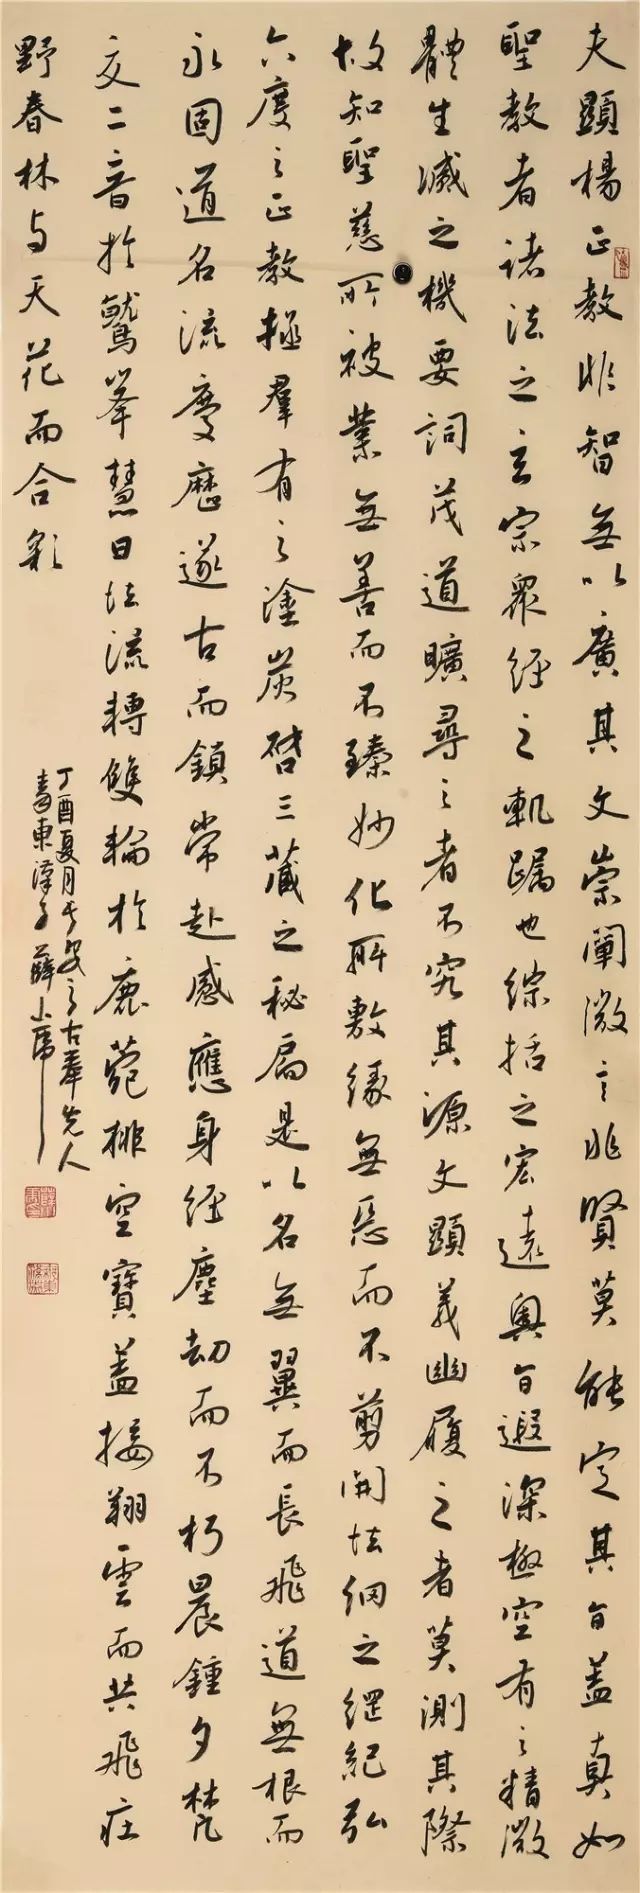 夫顯楊正教非智無以廣其文崇闡微言非賢莫能定其旨蓋真如
聖教者諸法之玄宗眾經之軌躅也綜括宏遠奧旨遐深極空有之精微
體生滅之機要詞茂道曠尋之者不究其源文顯義幽履之者莫測其際
故知聖慈所被業無善而不臻妙化所敷緣無惡而不剪開法網之綱紀弘
六度之正教拯羣有之塗炭啓三藏之秘扃是以名無翼而長飛道無根而
永固道名流慶歷遂古而鎮常赴感應身經塵劫而不朽晨鐘夕梵
交二音於鷲峯慧日法流轉雙輪於鹿菀排空寶蓋接翔雲而共飛莊
野春林与天花而合彩
丁酉夏月古奉先人
東漢子薛小虎